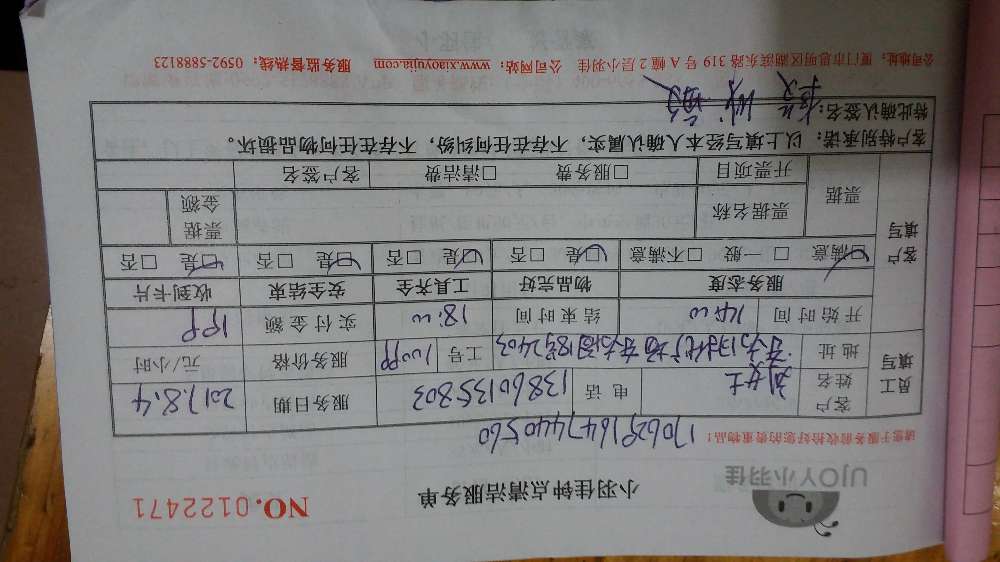 UJOY小羽佳
小羽佳钟点清洁服务单
NO.0122471
请您于服务前收拾好您的贵重物品!
17062916474440560
员工填写
客户姓名 刘女士 电话 13860135803 服务日期 2017.8.4
地址 工号 服务价格 元/小时
开始时间 14:00 结束时间 18:00 实付金额
服务态度 物品完好 工具齐全 安全结束 收到卡片
客户填写
☑满意 □一般 □不满意 ☑是 □否 ☑是 □否 ☑是 □否 ☑是 □否
票据 票据名称 票据金额
开票项目 □服务费 □清洁费 客户签名
客户特别承诺:以上填写经本人确认属实,不存在任何纠纷,不存在任何物品损坏。
特此确认签名:
公司地址:厦门市思明区湖滨东路319号A幢2层小羽佳 公司网站:www.xiaoyujia.com 服务监督热线:0592-5888123